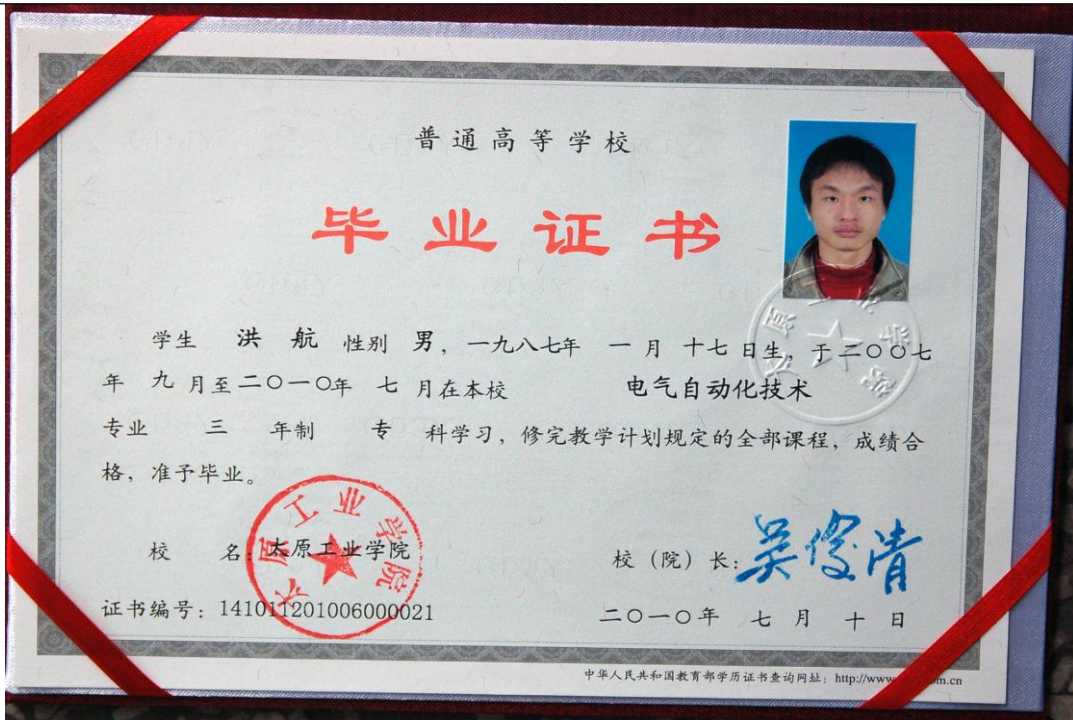 普通高等学校
毕业证书
学生 洪航 性别 男，一九八七年 一月十七日生，于二〇〇七
年 九月至二〇一〇年 七月在本校 电气自动化技术
专业 三 年制 专 科学习，修完教学计划规定的全部课程，成绩合
格，准予毕业。
校 名：太原工业学院
校（院）长：吴俊清
证书编号：141011201006000021
二〇一〇年 七月十日
中华人民共和国教育部学历证书查询网址：http://www. om.cn
太原工业学院
太原工业学院